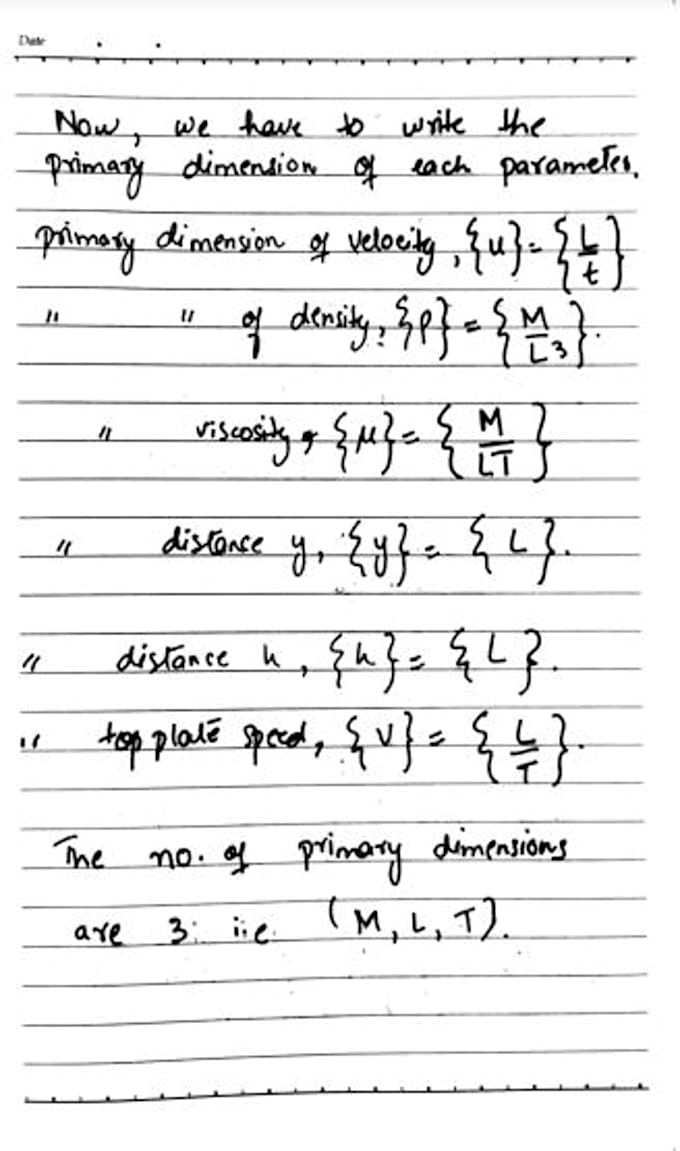 Date
Now, we have to write the
primary dimension of each parameter.
primary dimension of velocity, {u} = {L/t}
" " of density, {ρ} = {M/L³}.
" viscosity, {μ} = {M/LT}
" distance y, {y} = {L}.
" distance h, {h} = {L}.
" top plate speed, {V} = {L/T}.
The no. of primary dimensions
are 3. i.e. (M, L, T).